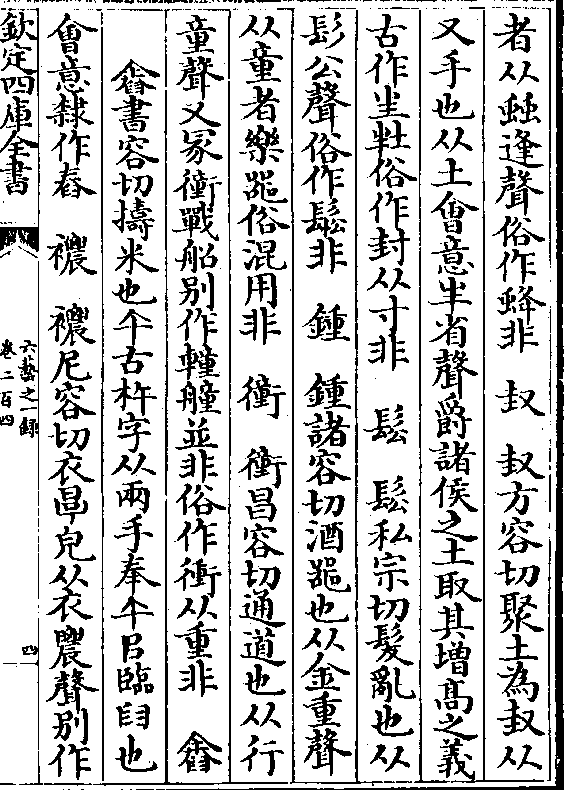 者从䖵逢聲俗作蜂非　㕛　㕛方容切聚土為㕛从
又手也从土會意半省聲爵諸侯之土取其增髙之義
古作𡉚牡俗作封从寸非　鬆　鬆私宗切髮亂也从
髟公聲俗作鬆非　鍾　鍾諸容切酒噐也从金重聲
从童者樂噐俗混用非　衝　衝昌容切通道也从行
童聲又冡衝戰船别作䡴艟並非俗作衝从重非　舂
舂書容切擣米也午古杵字从兩手奉午㠯臨臼也
會意隸作舂　襛　襛尼容切衣厚皃从衣農聲别作
欽定四庫全書
六藝之一録
卷二百四
四